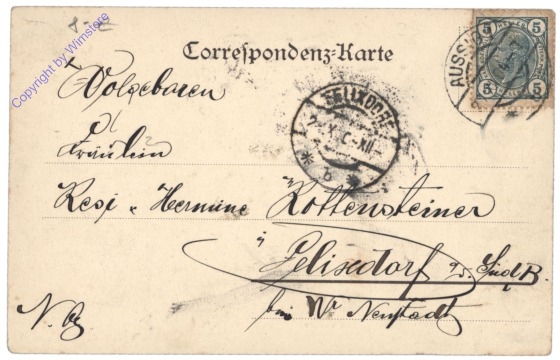 Copyright by Wimstore
Correspondenz-Karte
5 5
5 5
AUSSIG
FELIXDORF
XII
* b *
Wolgeboren
Fräulein
Resi u. Hermine Rottensteiner
in
Felixdorf a/d. Süd B.
bei Wr Neustadt
N. Ö